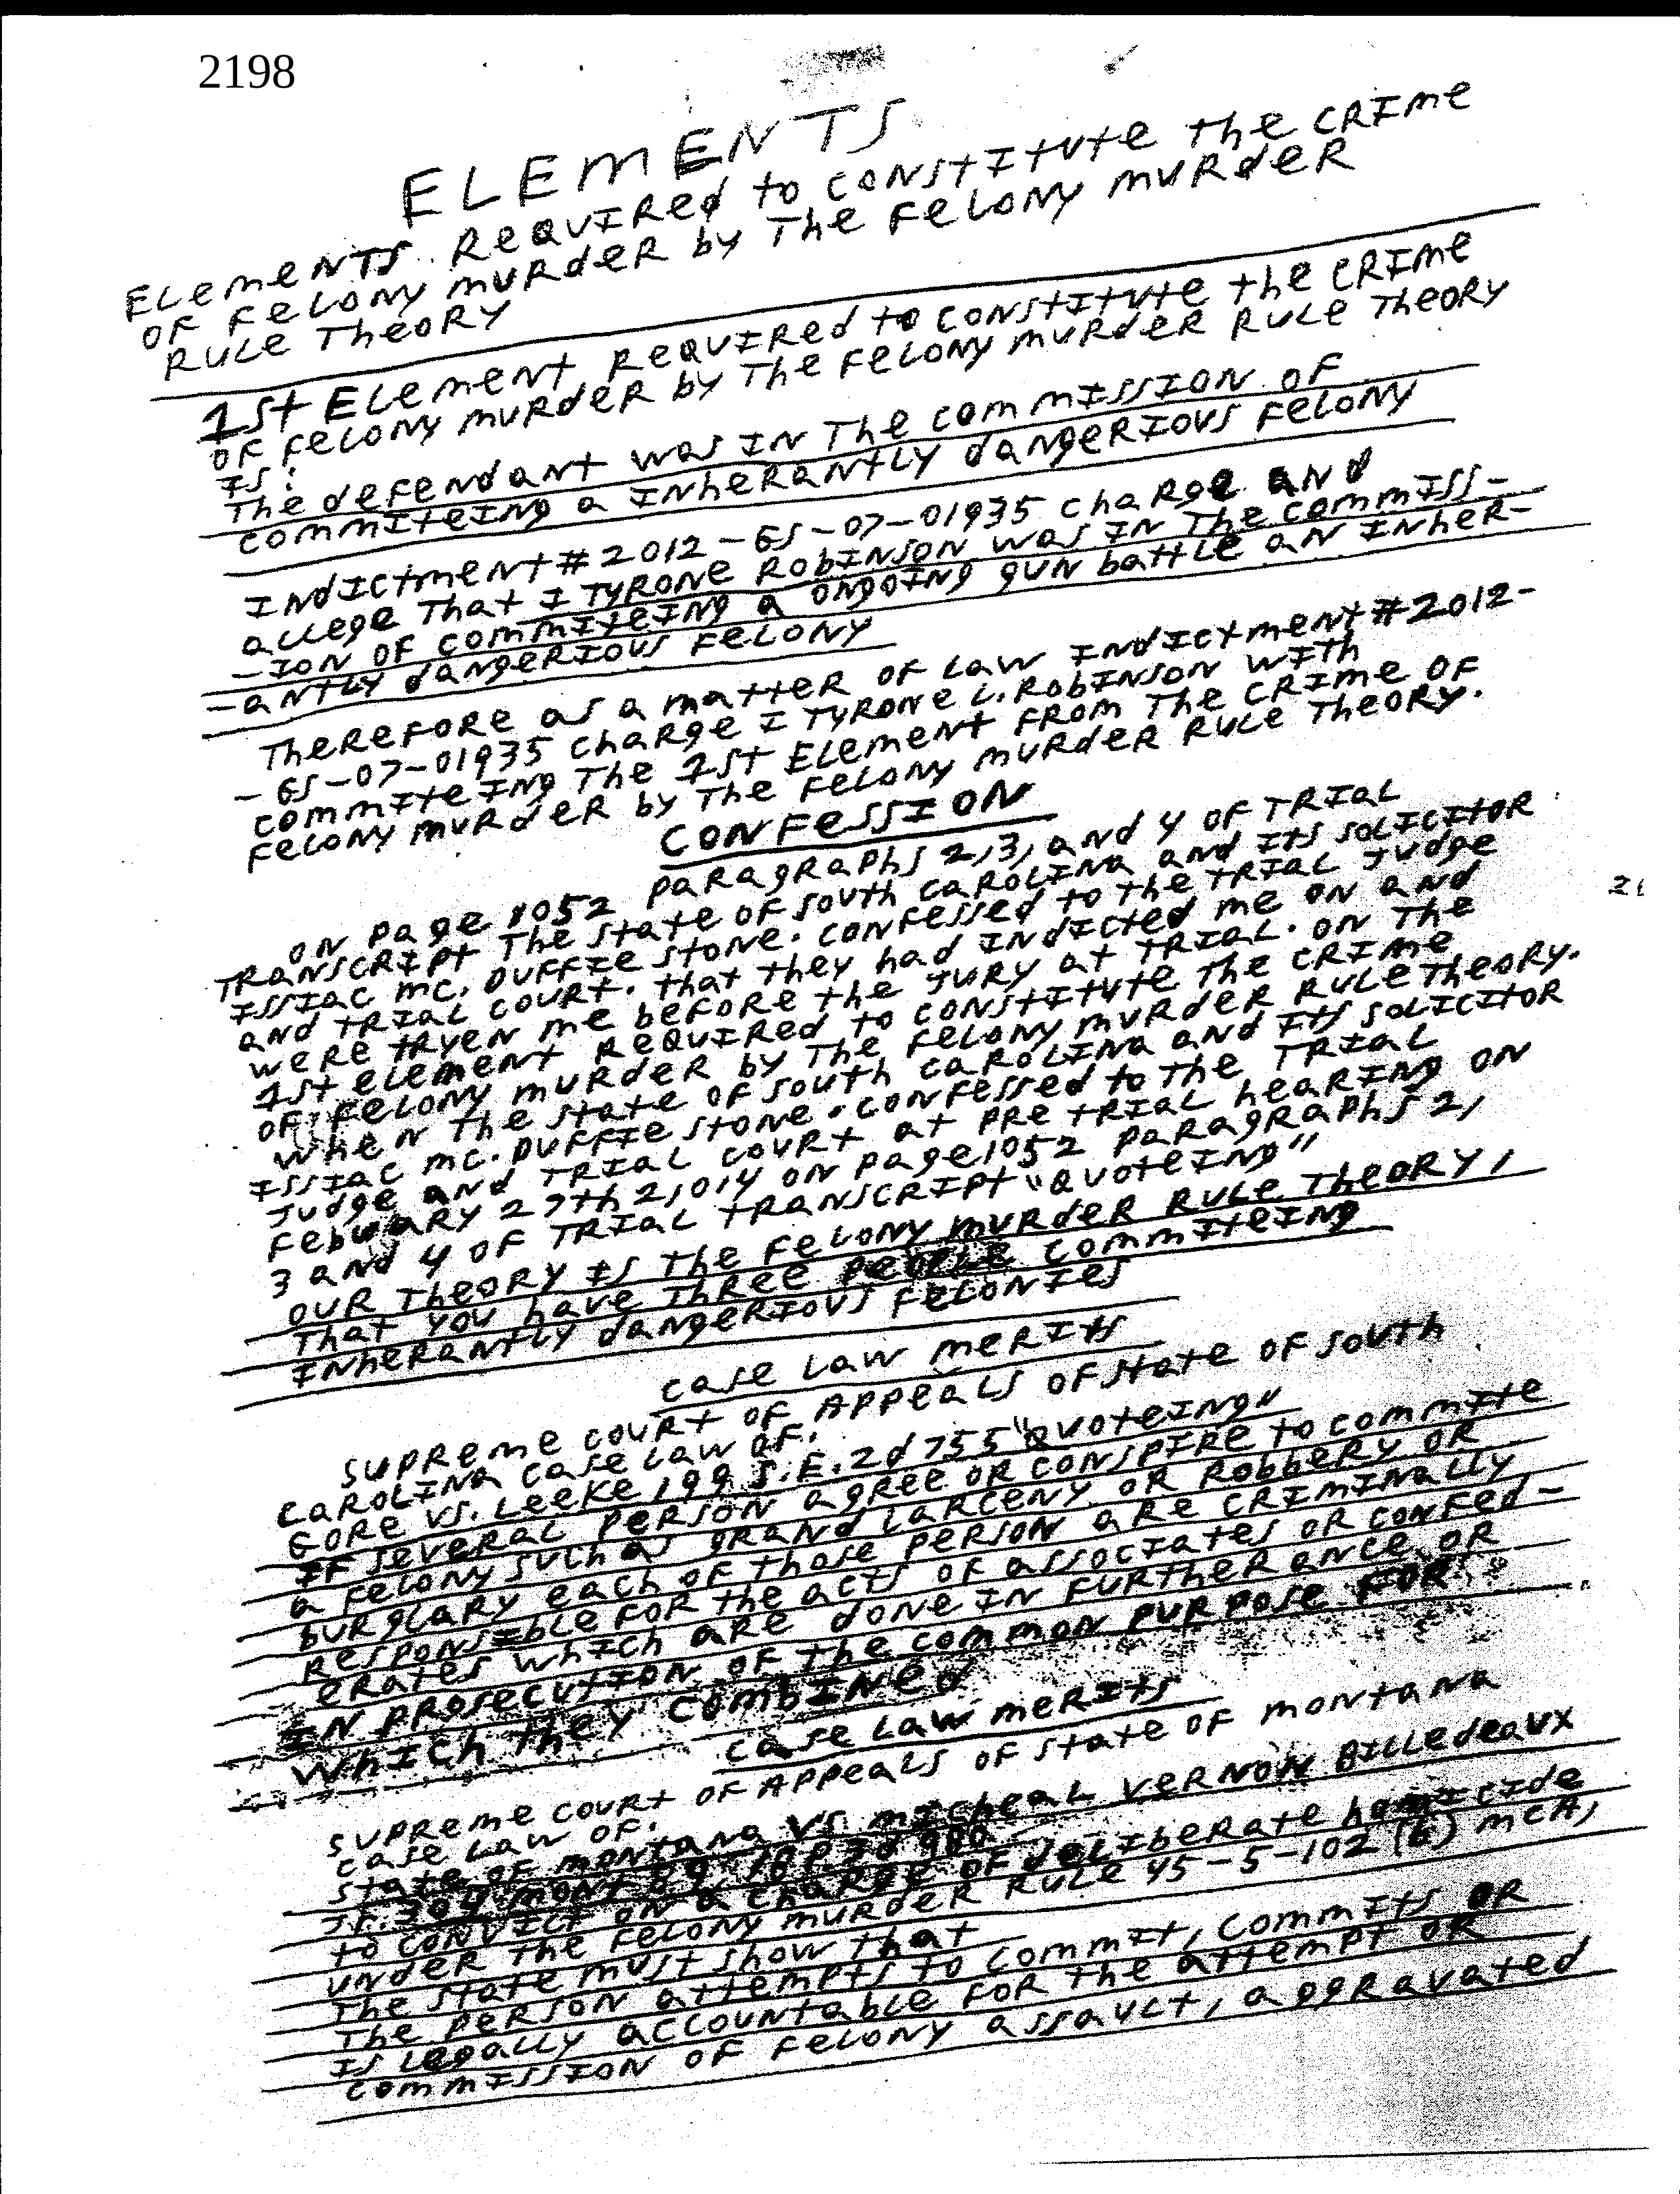 2198
ELEMENTS
ELEMENTS REQUIRED to CONSTITUTE the CRIME
OF FELONY MURDER by The FELONY MURDER
RULE THEORY
1st ELEMENT REQUIRED to CONSTITUTE the CRIME
OF FELONY MURDER by The FELONY MURDER RULE THEORY
IS:
The defendant was IN The COMMISSION OF
COMMITEING a INHERANTLY dANGERIOUS FELONY
INDICTMENT # 2012-GS-07-01935 CHARGE AND
allege That I TYRONE ROBINSON was IN The COMMISS-
-ION OF COMMITEING a ONGOING GUN battle an INHER-
-ANTLY dANGERIOUS FELONY
THEREFORE as a matter OF Law INDICTMENT # 2012-
-GS-07-01935 charge I TYRONE L. ROBINSON WITH
COMMITEING The 1st ELEMENT FROM The CRIME OF
FELONY MURDER by The FELONY MURDER RULE THEORY.
CONFESSION
ON page 1052 PARAGRAPHS 2,3, and 4 OF TRIAL
TRANSCRIPT The State OF SOUTH CAROLINA and ITS SOLICITOR
ISSIAC MC. DUFFIE STONE. CONFESSED to the TRIAL Judge
and TRIAL COURT. that they had INDICTED me ON and
were TRYEN me beFORE the JURY at TRIAL. ON The
1st element REQUIRED to CONSTITUTE The CRIME
OF FELONY MURDER by The FELONY MURDER RULE THEORY.
When The State OF SOUTH CAROLINA and ITS SOLICITOR
ISSIAC MC. DUFFIE STONE. CONFESSED to the TRIAL
Judge and TRIAL COURT at PRE TRIAL hearing ON
FebuaRY 27th 2,014 ON page 1052 PARAGRAPHS 2,
3 and 4 OF TRIAL TRANSCRIPT "QUOTEING"
OUR THEORY IS The FELONY MURDER RULE THEORY,
That you have THREE PEOPLE COMMITEING
INHERANTLY dANGERIOUS FELONIES
case Law MERITS
SUPREME COURT OF APPEALS OF State OF SOUTH
CAROLINA CASE LAW OF.
GORE VS. LEEKE, 199 S.E. 2d 755 "QUOTEING"
IF SEVERAL PERSON AGREE OR CONSPIRE to COMMITE
a FELONY SUCH as GRAND LARCENY OR ROBBERY OR
bURGLARY each OF those PERSON ARE CRIMINALLY
RESPONSIBLE FOR THE acts OF ASSOCIATES OR CONFED-
ERATES which are done IN FURTHERANCE OR
IN PROSECUTION OF THE COMMON PURPOSE FOR
WHICH They COMBINED
case Law MERITS
SUPREME COURT OF APPEALS OF State OF MONTANA
CASE LAW OF.
STATE OF MONTANA VS. MICHEAL VERNON BILLEDEAUX
TO CONVICT ON a CHARGE OF DELIBERATE HOMICIDE
UNDER THE FELONY MURDER RULE 45-5-102 (b) MCA,
The State MUST show that
The PERSON attempts to commit, commits OR
IS Legally ACCOUNTABLE FOR the attempt OR
COMMISSION OF FELONY assault, aggravated